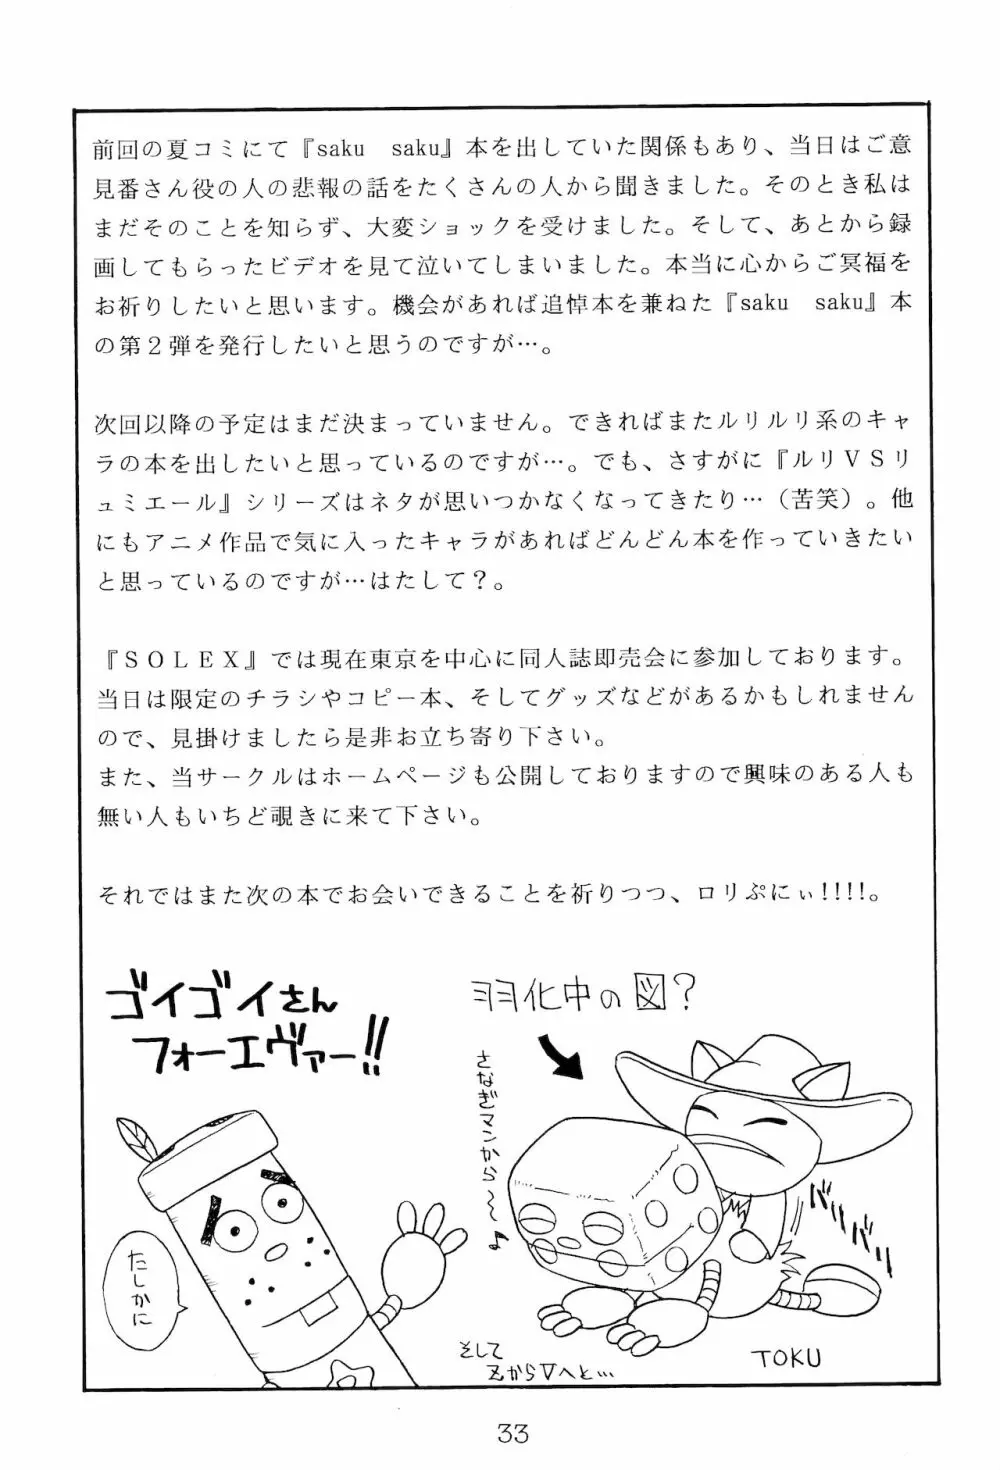 前回の夏コミにて『saku　saku』本を出していた関係もあり、当日はご意
見番さん役の人の悲報の話をたくさんの人から聞きました。そのとき私は
まだそのことを知らず、大変ショックを受けました。そして、あとから録
画してもらったビデオを見て泣いてしまいました。本当に心からご冥福を
お祈りしたいと思います。機会があれば追悼本を兼ねた『saku　saku』本
の第２弾を発行したいと思うのですが…。
次回以降の予定はまだ決まっていません。できればまたルリルリ系のキャ
ラの本を出したいと思っているのですが…。でも、さすがに『ルリＶＳリ
ュミエール』シリーズはネタが思いつかなくなってきたり…（苦笑）。他
にもアニメ作品で気に入ったキャラがあればどんどん本を作っていきたい
と思っているのですが…はたして？。
『ＳＯＬＥＸ』では現在東京を中心に同人誌即売会に参加しております。
当日は限定のチラシやコピー本、そしてグッズなどがあるかもしれません
ので、見掛けましたら是非お立ち寄り下さい。
また、当サークルはホームページも公開しておりますので興味のある人も
無い人もいちど覗きに来て下さい。
それではまた次の本でお会いできることを祈りつつ、ロリぷにぃ!!!!。
ゴイゴイさん
フォーエヴァー!!
羽化中の図?
さなぎマンから〜〜
たしかに
そして
Zから∇へと…
TOKU
33